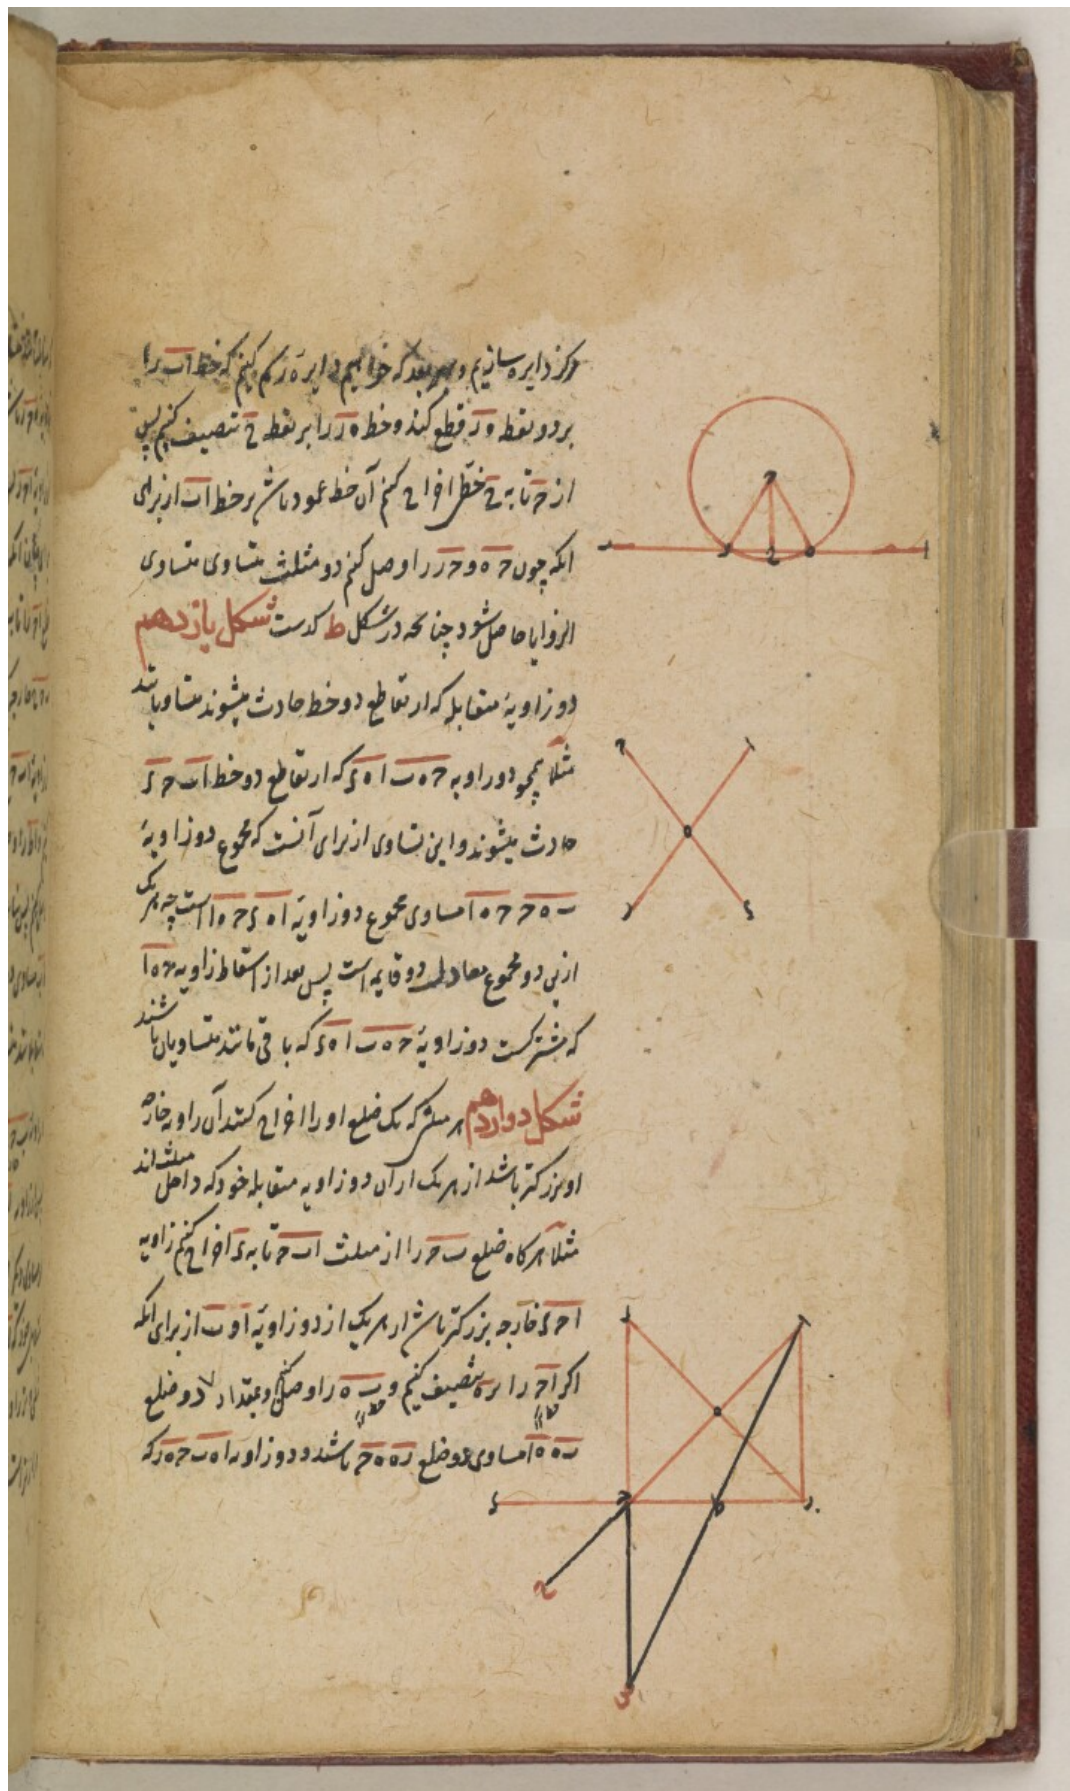 مرکز دایره سازیم و ببعد که خواهیم دایره ٔ رسم کنیم که خط اب را
بر دو نقطه ه ر قطع کند و خط ه ر را بر نقطه ح تنصیف کنیم پس
از حـ تا به ح خطی اخراج کنم آن خط عمود باشد بر خط اب از برای
انکه چون حـ ه و حـ ر را وصل کنم دو مثلث متساوی متساوی
الزوایا حاصل شود چنانچه در شکل ط کدست شکل یازدهم
دو زاویهٔ متقابله که از تقاطع دو خط حادث میشوند متساوی باشند
مثلا همچو دو زاویه حـ ه ب ا ه ی که از تقاطع دو خط اب حـ ی
حادث میشوند و این تساوی از برای آنست که مجموع دو زاویهٔ
ب ه حـ حـ ه ا مساوی مجموع دو زاویهٔ ا ه ی حـ ه ا است چه هر یک
ازین دو مجموع معادل دو قایمه است پس بعد از اسقاط زاویه حـ ه ا
که مشترکست دو زاویهٔ حـ ه ب ا ه ی که باقی مانند متساویان باشند
شکل دوازدهم هر مثلثی که یک ضلع او را اخراج کنند آن زاویه خارجه
او بزرکتر باشد از هر یک از آن دو زاویه متقابله خود که داخل مثلث اند
مثلا هر کاه ضلع ب حـ را از مثلث اب حـ تا به ی اخراج کنم زاویه
ا حـ ی خارجه بزرکتر باشد از هر یک از دو زاویهٔ ا و ب از برای انکه
اکر ا حـ را بر ه تنصیف کنیم و ب ه را وصل کنیم و بمقدار دو ضلع
ب ه ه ا مساوی دو ضلع ر ه ه حـ باشند و دو زاویه ا ه ب حـ ه ر که